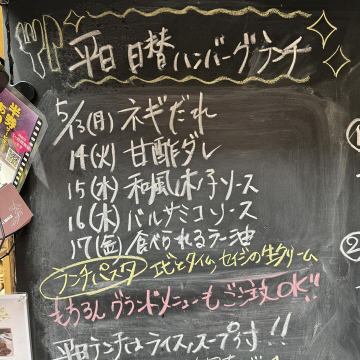 平日 日替ハンバーグランチ
5/13(月) ネギだれ
14(火) 甘酢ダレ
15(水) 和風木ノ子ソース
16(木) バルサミコソース
17(金) 食べられるラー油
ランチパスタ エビとタイム、セイジの生クリーム
もちろん グランドメニューもご注文OK!!
平日ランチはライス、スープ付!!
①
②